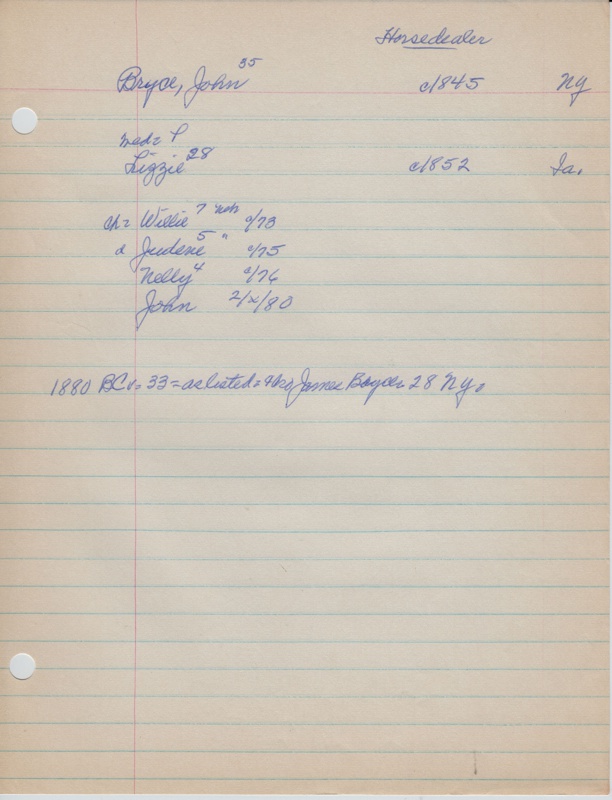 Horsedealer
Bryce, John 35 c/1845 Ny
mar= P
Lizzie 28 c/1852 Ia.
ch= Willie 7 Neb c/73
d Judene 5 " c/75
Nelly 4 c/76
John 2/x/80
1880 BCo= 33= as listed= James 28 Ny.